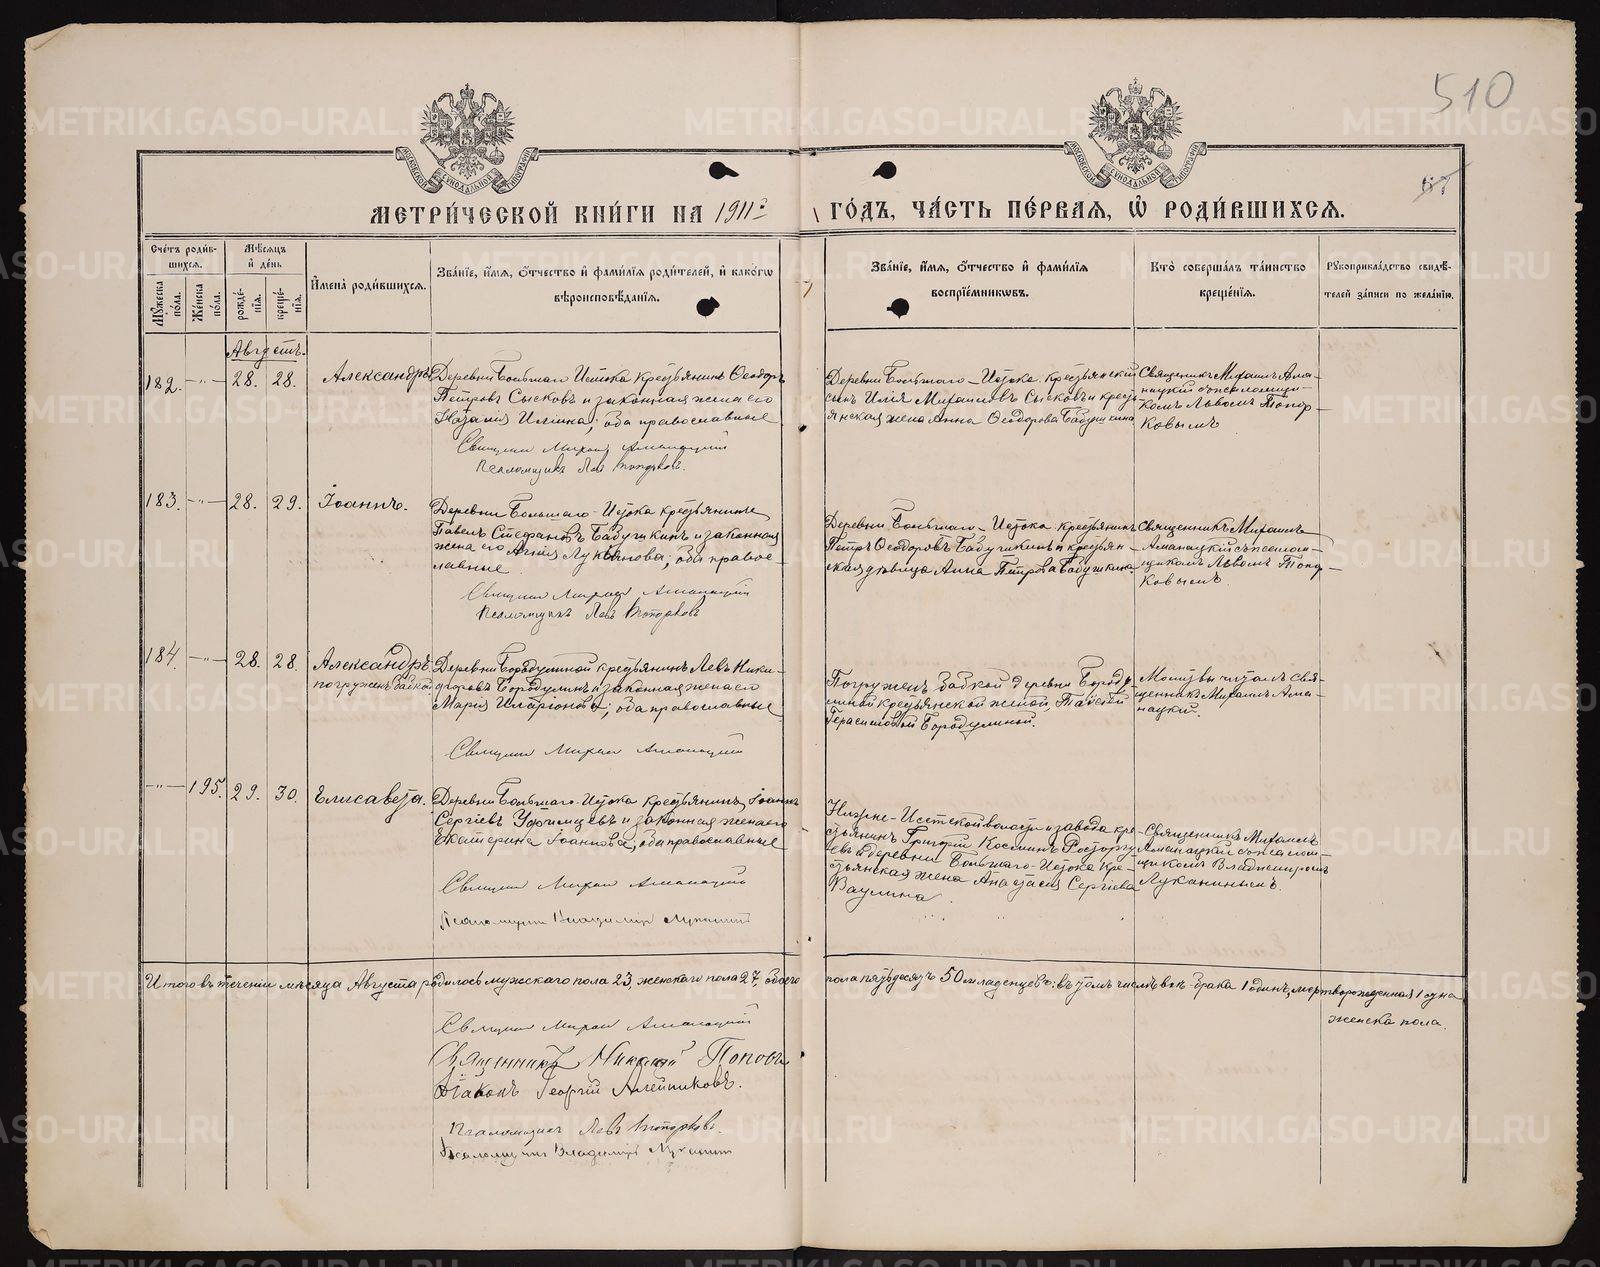 510
67
МЕТРИ́ЧЕСКОЙ КНИ́ГИ НА 1911й ГО́ДЪ, ЧА́СТЬ ПЕ́РВАЯ, Ѡ РОДИ́ВШИХСЯ.
Сче́тъ роди́вшихся.
Му́жеска по́ла.
Же́нска по́ла.
Мѣ́сяцъ и҆ де́нь
рожде́нія.
креще́нія.
И҆мена̀ роди́вшихся.
Зва́нїе, и҆́мя, ѻ҆́тчество и҆ фами́лїя роди́телей, и҆ како́гѡ
вѣроисповѣ́данїя.
Зва́нїе, и҆́мя, ѻ҆́тчество и҆ фами́лїя
воспрїе́мникѡвъ.
Кто̀ соверша́лъ та́инство
креще́нїя.
Рꙋкоприкла́дство свидѣ́-
телей за́писи по жела́нїю.
Августъ.
182. —"— 28. 28. Александръ
Деревни Большаго Истока крестьянинъ Ѳеодоръ
Петровъ Сысковъ и законная жена его
оба православные
Священникъ Михаилъ Аманацкій
Псаломщикъ Левъ Топорковъ.
Деревни Большаго-Истока крестьянскій
сынъ Илія Михаиловъ Сысковъ и кресть-
янская жена Анна Ѳеодорова Бабушкина
Священникъ Михаилъ Ама-
нацкій съ псаломщи-
комъ Львомъ Топор-
ковымъ
183. —"— 28. 29. Іоаннъ.
Деревни Большаго-Истока крестьянинъ
Павелъ Стефановъ Бабушкинъ и законная
жена его Агнія Лукьянова; оба право-
славные
Священникъ Михаилъ Аманацкій
Псаломщикъ Левъ Топорковъ
Деревни Большаго-Истока крестьянинъ
Петръ Ѳеодоровъ Бабушкинъ и крестьян-
ская дѣвица Анна Петрова Бабушкина
Священникъ Михаилъ
Аманацкій съ псалом-
щикомъ Львомъ Топор-
ковымъ
184. —"— 28. 28. Александръ
погруженъ бабкой
Деревни Бородулиной крестьянинъ Левъ Ники-
форовъ Бородулинъ и законная жена его
Марія Иларіонова; оба православные
Священникъ Михаилъ Аманацкій
Погруженъ бабкой деревни Бороду-
линой крестьянской женой Таисіей
Герасимовой Бородулиной.
Молитвы читалъ свя-
щенникъ Михаилъ Ама-
нацкій.
—"— 195. 29. 30. Елисавета.
Деревни Большаго-Истока крестьянинъ Іоаннъ
Сергіевъ Уфимцевъ и законная жена его
Екатерина Іоаннова, оба православные
Священникъ Михаилъ Аманацкій
Псаломщикъ Владимиръ Луканинъ
Нижне-Исетской волости и завода кре-
стьянинъ Григорій Косминъ Расторгу-
евъ и деревни Большаго-Истока кре-
стьянская жена Анастасія Сергіева
Ваулина.
Священникъ Михаилъ
Аманацкій съ псалом-
щикомъ Владимиромъ
Луканинымъ.
Итого въ теченіи мѣсяца Августа родилось мужскаго пола 23, женскаго пола 27, обоего пола пятьдесятъ 50 младенцевъ; въ томъ числѣ внѣ-брака 1 одинъ, мертворожденная 1 одна
женска пола.
Священникъ Михаилъ Аманацкій
Священникъ Николай Поповъ
Діаконъ Георгій Алейниковъ.
Псаломщикъ Левъ Топорковъ.
Псаломщикъ Владимиръ Луканинъ
METRIKI.GASO-URAL.RU